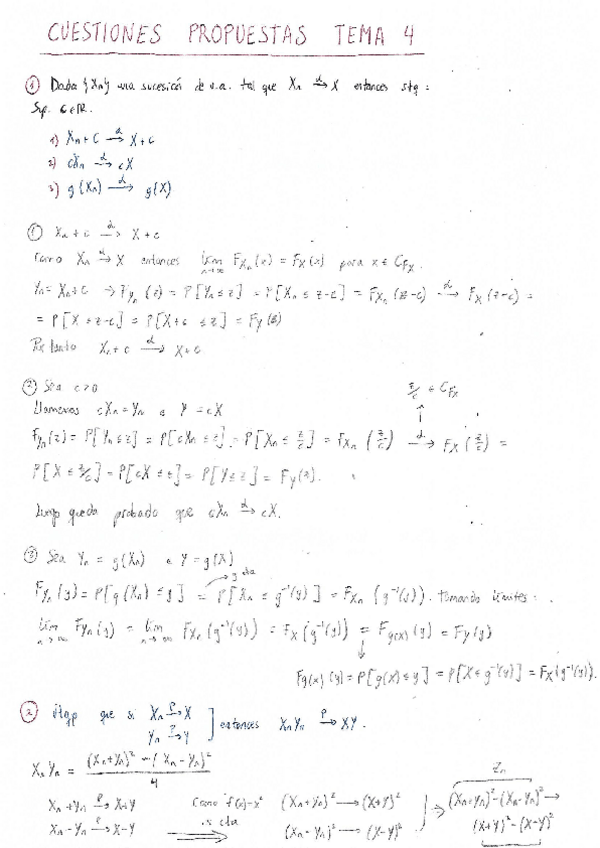 CUESTIONES PROPUESTAS TEMA 4
① Dada {Xn} una sucesión de v.a. tal que Xn →d X entonces
Sup. C∈ℝ.
1) Xn + C →d X + C
2) cXn →d cX
3) g(Xn) →d g(X)
① Xn + c →d X + c
Como Xn →d X entonces lim n→∞ FXn(x) = FX(x) para x ∈ CFX.
Yn = Xn + C → FYn(z) = P[Yn ≤ z] = P[Xn ≤ z-c] = FXn(z-c) →d FX(z-c) =
= P[X ≤ z-c] = P[X+c ≤ z] = FY(z)
Por tanto Xn + c →d X + c
② Sea c>0
z/c ∈ CFX
Llamemos cXn = Yn e Y = cX
FYn(z) = P[Yn ≤ z] = P[cXn ≤ z] = P[Xn ≤ z/c] = FXn(z/c) →d FX(z/c) =
P[X ≤ z/c] = P[cX ≤ z] = P[Y ≤ z] = FY(z).
Luego queda probado que cXn →d cX.
③ Sea Yn = g(Xn) e Y = g(X)
FYn(y) = P[g(Xn) ≤ y] = P[Xn ≤ g⁻¹(y)] = FXn(g⁻¹(y)). tomando límites:
lim n→∞ FYn(y) = lim n→∞ FXn(g⁻¹(y)) = FX(g⁻¹(y)) = Fg(X)(y) = FY(y)
Fg(X)(y) = P[g(X) ≤ y] = P[X ≤ g⁻¹(y)] = FX(g⁻¹(y)).
② que si Xn →P X
Yn →P Y ] entonces XnYn →P XY.
XnYn = ((Xn+Yn)² - (Xn-Yn)²)/4
Zn
Xn + Yn →P X+Y Como f(x)=x² (Xn+Yn)² → (X+Y)² (Xn+Yn)² - (Xn-Yn)² →
Xn - Yn →P X-Y (Xn-Yn)² → (X-Y)² (X+Y)² - (X-Y)²